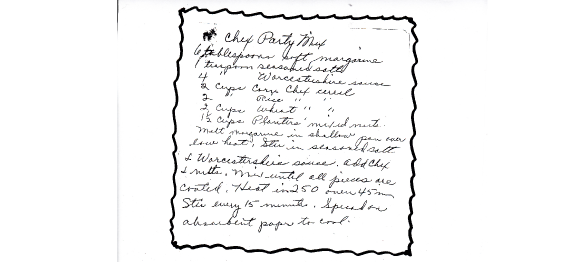 Chex Party Mix
6 tablespoons soft margarine
1 teaspoon seasoned salt
4 " Worcestershire sauce
2 cups Corn Chex cereal
2 " Rice " "
2 cups Wheat " "
1½ cups Planters' mixed nuts.
Melt margarine in shallow pan over
low heat. Stir in seasoned salt
& Worcestershire sauce. Add Chex
& nuts. Mix until all pieces are
coated. Heat in 250 oven 45 m
Stir every 15 minutes. Spread on
absorbent paper to cool.